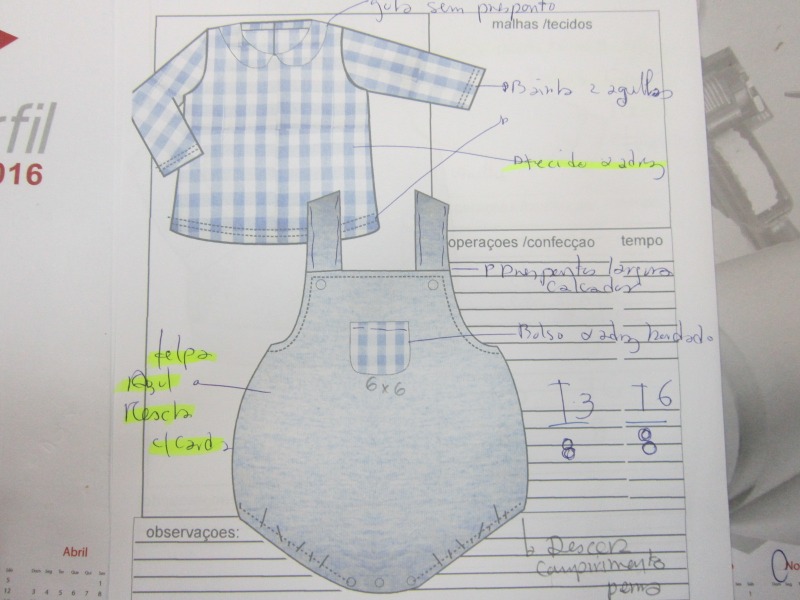 Gola sem presponto
malhas /tecidos
Bainha 2 agulhas
tecido xadrez
rfil
2016
operaçoes /confecçao
tempo
Prespontos largura
calcador
Bolso xadrez bordado
felpa
Azul
Mescla
c/ carda
6 x 6
T.3
T6
8
8
observaçoes:
Descer
comprimento
perna
Abril
No